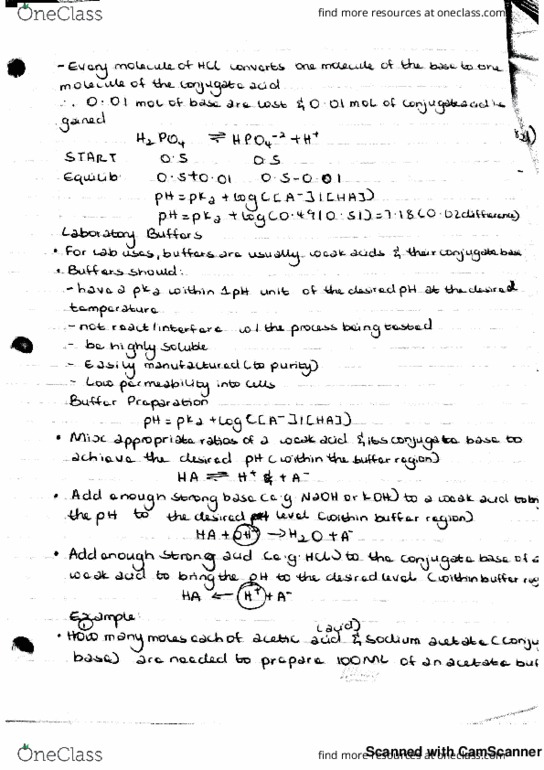 OneClass
find more resources at oneclass.com
- Every molecule of HCl converts one molecule of the base to one
molecule of the conjugate acid
∴ 0.01 mol of base are lost & 0.01 mol of conjugate acid is
gained
H2PO4 ⇌ HPO4-2 + H+
START 0.5 0.5
Equilib: 0.5+0.01 0.5-0.01
pH = pka + log([A-]/[HA])
pH = pka + log(0.49/0.51) = 7.18 (0.02 difference)
Laboratory Buffers
• For lab uses, buffers are usually weak acids & their conjugate base
• Buffers should:
- have a pka within 1 pH unit of the desired pH at the desired
temperature
- not react/interfere w/ the process being tested
- be highly soluble
- Easily manufactured (to purity)
- Low permeability into cells
Buffer Preparation
pH = pka + log([A-]/[HA])
• Mix appropriate ratios of a weak acid & its conjugate base to
achieve the desired pH (within the buffer region)
HA ⇌ H+ + A-
• Add enough strong base (e.g. NaOH or KOH) to a weak acid to
the pH to the desired pH level (within buffer region)
HA + OH- → H2O + A-
• Add enough strong acid (e.g. HCl) to the conjugate base of a
weak acid to bring the pH to the desired level (within buffer reg
HA ← H+ + A-
Example:
(acid)
• How many moles each of acetic acid & sodium acetate (conju
base) are needed to prepare 100mL of an acetate buf
OneClass
find more resources at oneclass.com
Scanned with CamScanner